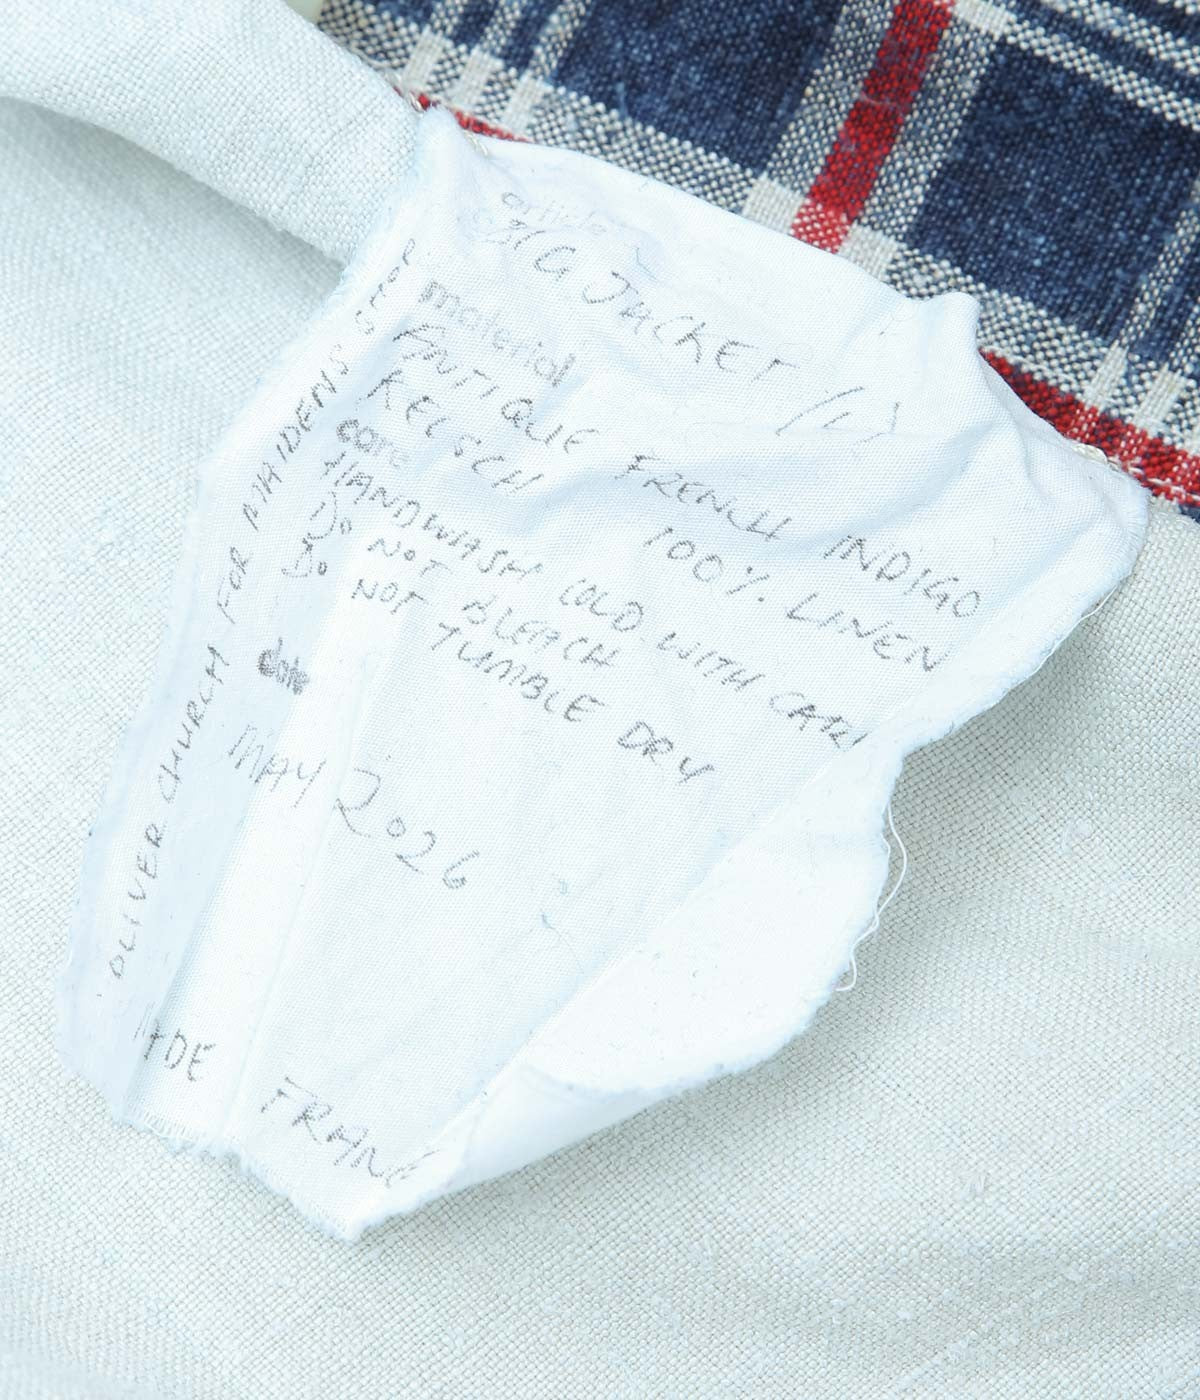 article
JACKET
material
ANTIQUE FRENCH INDIGO
KELSCH 100% LINEN
care
HANDWASH COLD WITH CARE
DO NOT BLEACH
DO NOT TUMBLE DRY
date
MAY 2026
OLIVER CHURCH FOR MAIDENS
FRANC